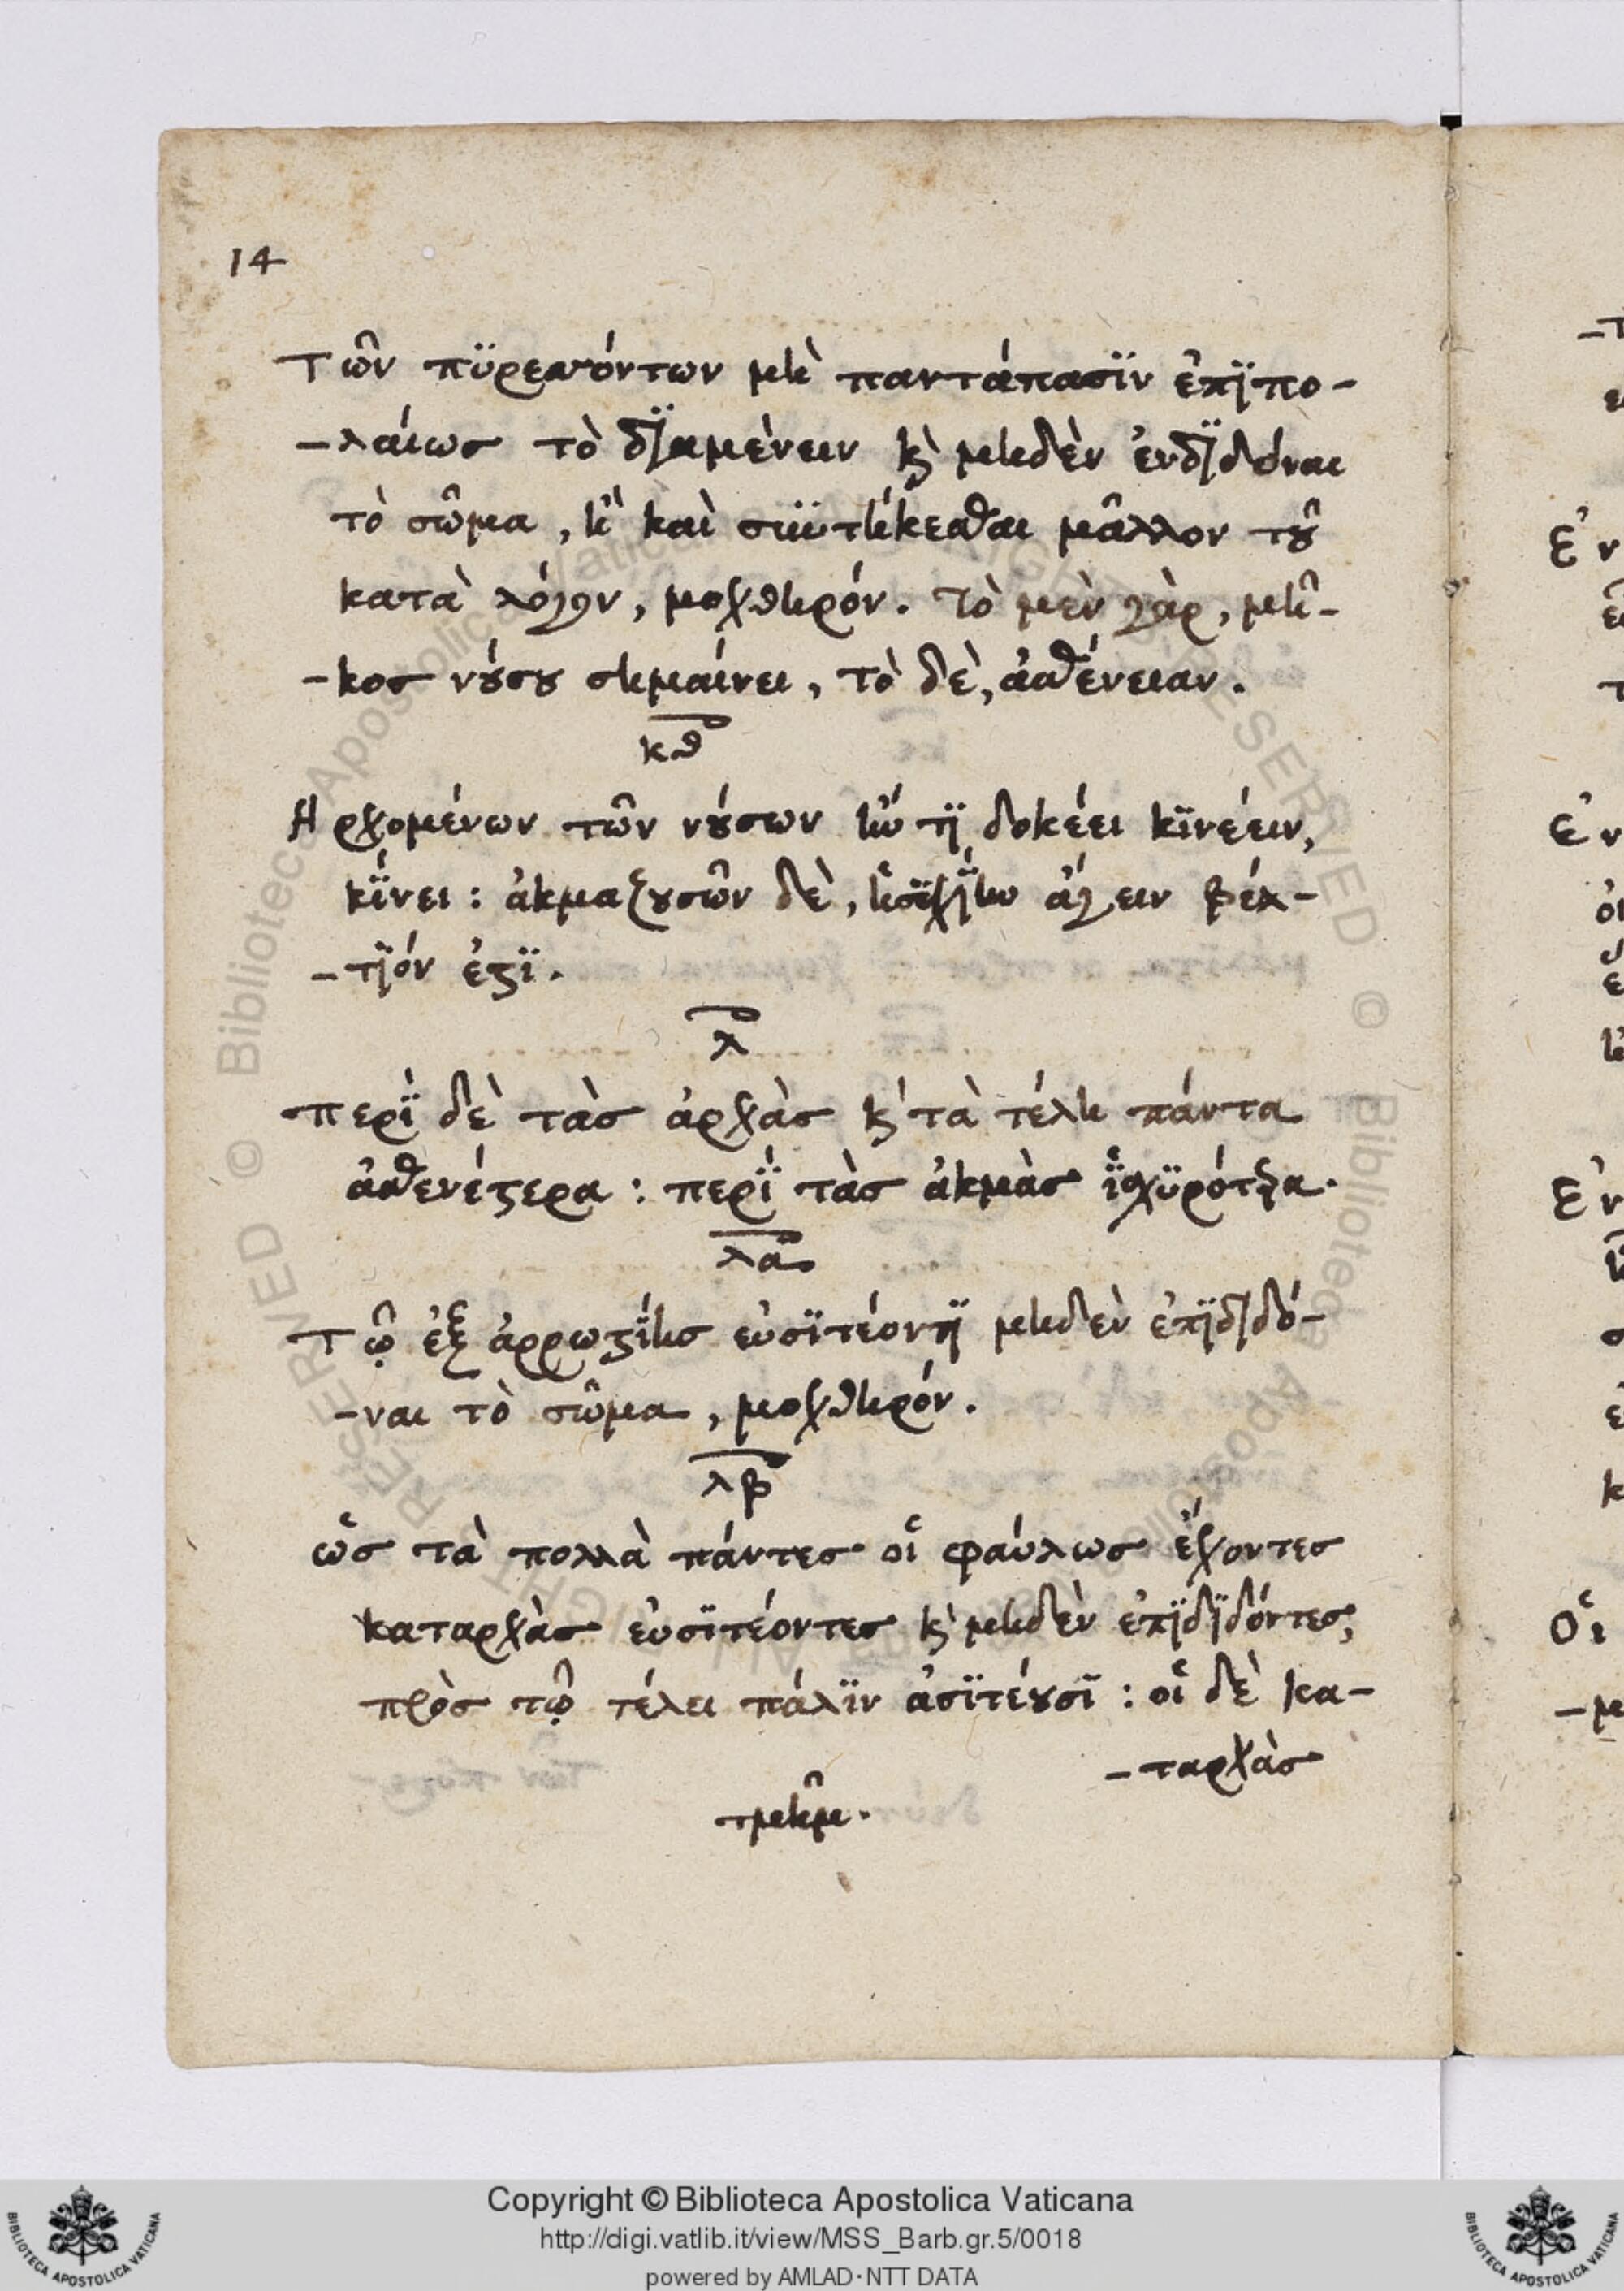 14
Τῶν πϋρεσσόντων μὴ παντάπασϊν ἐπϊπο-
-λαίως τὸ δϊαμένειν κ̀ μηδὲν ἐνδϊδόναι
τὸ σῶμα, ἢ καὶ συντήκεσθαι μᾶλλον τȣ͂
κατὰ λόγον, μοχθηρόν. Τὸ μὲν γὰρ, μῆ-
-κος νȣ́σȣ σημαίνει, τὸ δὲ, ἀσθένειαν.
κθ
Αρχομένων τῶν νȣ́σων ἤν τϊ δοκέει κϊνέειν,
κΐνει: ἀκμαζȣσῶν δὲ, ἡσϋχΐην ἄγειν βέλ-
-τϊόν ἐϛϊ.
λ
Περῒ δὲ τὰς ἀρχὰς κ̀ τὰ τέλη πάντα
ἀσθενέϛερα: περῒ τὰς ἀκμὰς ἰσχϋρότερα.
λα
Τῷ ἐξ ἀρρωϛΐης εὐσϊτέοντϊ μηδὲν ἐπϊδϊδό-
-ναι τὸ σῶμα, μοχθηρόν.
λβ
ὡς τὰ πολλὰ πάντες οἱ φαύλως ἔχοντες
καταρχὰς εὐσϊτέοντες κ̀ μηδὲν ἐπϊδϊδόντες,
πρὸς τῷ τέλει πάλϊν ἀσϊτέȣσϊ: οἱ δὲ κα-
-ταρχὰς
τμῆμ.
Copyright © Biblioteca Apostolica Vaticana
http://digi.vatlib.it/view/MSS_Barb.gr.5/0018
powered by AMLAD·NTT DATA